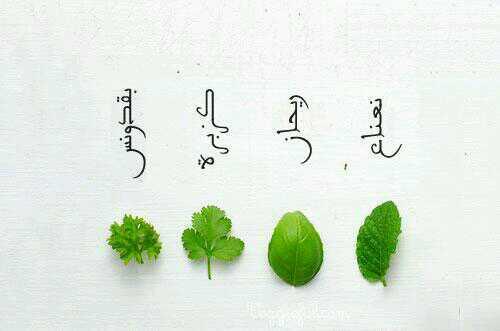 نعناع
ريحان
كزبرة
بقدونس